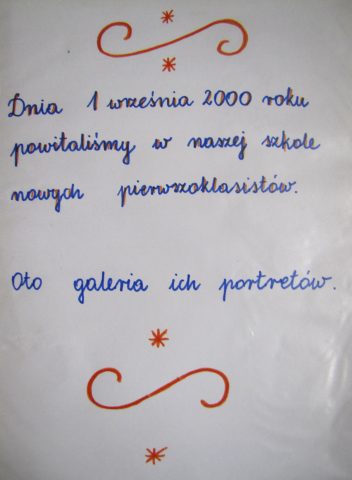 Dnia 1 września 2000 roku
powitaliśmy w naszej szkole
nowych pierwszoklasistów.
Oto galeria ich portretów.